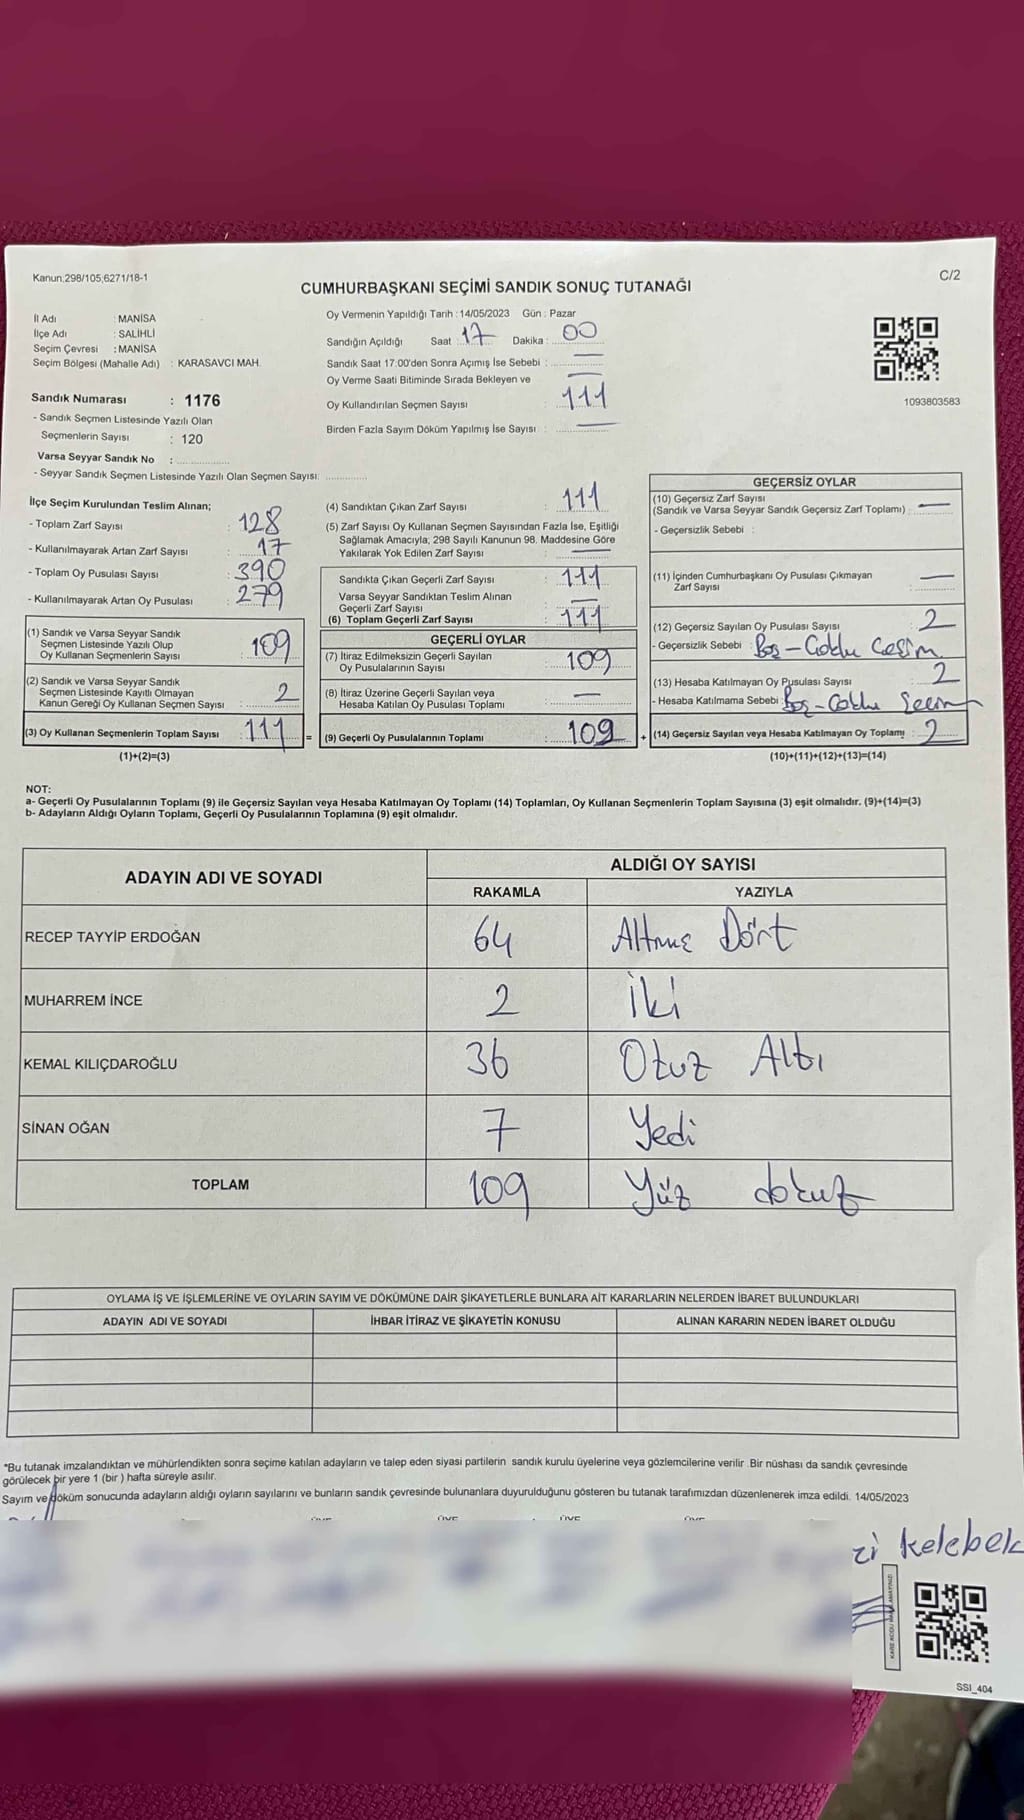 Kanun:298/105;6271/18-1
C/2
CUMHURBAŞKANI SEÇİMİ SANDIK SONUÇ TUTANAĞI
İl Adı : MANİSA
İlçe Adı : SALİHLİ
Seçim Çevresi : MANİSA
Seçim Bölgesi (Mahalle Adı) : KARASAVCI MAH.
Sandık Numarası : 1176
- Sandık Seçmen Listesinde Yazılı Olan
Seçmenlerin Sayısı : 120
Varsa Seyyar Sandık No :
- Seyyar Sandık Seçmen Listesinde Yazılı Olan Seçmen Sayısı:
Oy Vermenin Yapıldığı Tarih : 14/05/2023 Gün : Pazar
Sandığın Açıldığı Saat : 17 Dakika : 00
Sandık Saat 17:00'den Sonra Açımış İse Sebebi : —
Oy Verme Saati Bitiminde Sırada Bekleyen ve —
Oy Kullandırılan Seçmen Sayısı : 111
Birden Fazla Sayım Döküm Yapılmış İse Sayısı : —
1093803583
İlçe Seçim Kurulundan Teslim Alınan;
- Toplam Zarf Sayısı : 128
- Kullanılmayarak Artan Zarf Sayısı : 17
- Toplam Oy Pusulası Sayısı : 390
- Kullanılmayarak Artan Oy Pusulası : 279
(1) Sandık ve Varsa Seyyar Sandık
Seçmen Listesinde Yazılı Olup
Oy Kullanan Seçmenlerin Sayısı : 109
(2) Sandık ve Varsa Seyyar Sandık
Seçmen Listesinde Kayıtlı Olmayan
Kanun Gereği Oy Kullanan Seçmen Sayısı : 2
(3) Oy Kullanan Seçmenlerin Toplam Sayısı : 111
(1)+(2)=(3)
(4) Sandıktan Çıkan Zarf Sayısı : 111
(5) Zarf Sayısı Oy Kullanan Seçmen Sayısından Fazla İse, Eşitliği
Sağlamak Amacıyla; 298 Sayılı Kanunun 98. Maddesine Göre
Yakılarak Yok Edilen Zarf Sayısı : —
Sandıkta Çıkan Geçerli Zarf Sayısı : 111
Varsa Seyyar Sandıktan Teslim Alınan
Geçerli Zarf Sayısı : —
(6) Toplam Geçerli Zarf Sayısı : 111
GEÇERLİ OYLAR
(7) İtiraz Edilmeksizin Geçerli Sayılan
Oy Pusulalarının Sayısı : 109
(8) İtiraz Üzerine Geçerli Sayılan veya
Hesaba Katılan Oy Pusulası Toplamı : —
= (9) Geçerli Oy Pusulalarının Toplamı : 109
GEÇERSİZ OYLAR
(10) Geçersiz Zarf Sayısı
(Sandık ve Varsa Seyyar Sandık Geçersiz Zarf Toplamı) : —
- Geçersizlik Sebebi :
(11) İçinden Cumhurbaşkanı Oy Pusulası Çıkmayan
Zarf Sayısı : —
(12) Geçersiz Sayılan Oy Pusulası Sayısı : 2
- Geçersizlik Sebebi : Boş -
(13) Hesaba Katılmayan Oy Pusulası Sayısı : 2
- Hesaba Katılmama Sebebi : Boş -
+ (14) Geçersiz Sayılan veya Hesaba Katılmayan Oy Toplamı : 2
(10)+(11)+(12)+(13)=(14)
NOT:
a- Geçerli Oy Pusulalarının Toplamı (9) ile Geçersiz Sayılan veya Hesaba Katılmayan Oy Toplamı (14) Toplamları, Oy Kullanan Seçmenlerin Toplam Sayısına (3) eşit olmalıdır. (9)+(14)=(3)
b- Adayların Aldığı Oyların Toplamı, Geçerli Oy Pusulalarının Toplamına (9) eşit olmalıdır.
ADAYIN ADI VE SOYADI
ALDIĞI OY SAYISI
RAKAMLA YAZIYLA
RECEP TAYYİP ERDOĞAN 64 Altmış Dört
MUHARREM İNCE 2 İki
KEMAL KILIÇDAROĞLU 36 Otuz Altı
SİNAN OĞAN 7 Yedi
TOPLAM 109 Yüz dokuz
OYLAMA İŞ VE İŞLEMLERİNE VE OYLARIN SAYIM VE DÖKÜMÜNE DAİR ŞİKAYETLERLE BUNLARA AİT KARARLARIN NELERDEN İBARET BULUNDUKLARI
ADAYIN ADI VE SOYADI İHBAR İTİRAZ VE ŞİKAYETİN KONUSU ALINAN KARARIN NEDEN İBARET OLDUĞU
*Bu tutanak imzalandıktan ve mühürlendikten sonra seçime katılan adayların ve talep eden siyasi partilerin sandık kurulu üyelerine veya gözlemcilerine verilir .Bir nüshası da sandık çevresinde
görülecek bir yere 1 (bir ) hafta süreyle asılır.
Sayım ve döküm sonucunda adayların aldığı oyların sayılarını ve bunların sandık çevresinde bulunanlara duyurulduğunu gösteren bu tutanak tarafımızdan düzenlenerek imza edildi. 14/05/2023
ÜYE ÜYE ÜYE ÜYE
zi kelebek
SSI_404